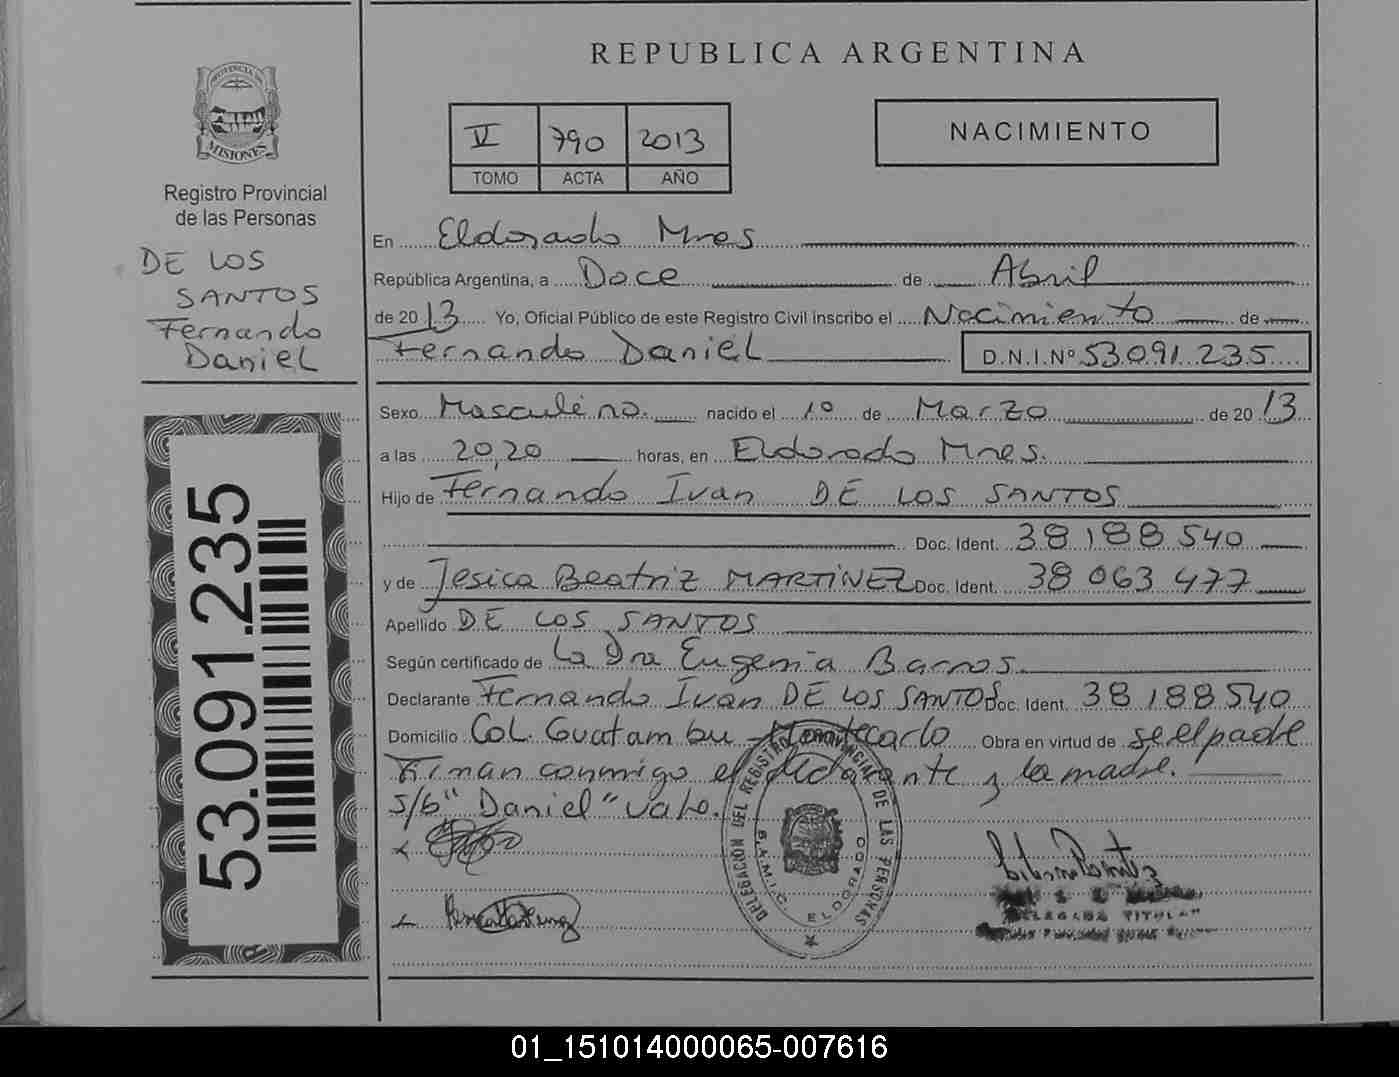 REPUBLICA ARGENTINA
PROVINCIA DE
MISIONES
Registro Provincial
de las Personas
DE LOS
SANTOS
Fernando
Daniel
53.091.235
IV 790 2013
TOMO ACTA AÑO
NACIMIENTO
En Eldorado Mnes
República Argentina, a Doce de Abril
de 2013 Yo, Oficial Público de este Registro Civil inscribo el Nacimiento de
Fernando Daniel D.N.I.Nº 53.091.235
Sexo Masculino. nacido el 1º de Marzo de 2013
a las 20,20 horas, en Eldorado Mnes.
Hijo de Fernando Ivan DE LOS SANTOS
Doc. Ident. 38 188 540
y de Jesica Beatriz MARTINEZ Doc. Ident. 38 063 477
Apellido DE LOS SANTOS
Según certificado de La Dra Eugenia Barros.
Declarante Fernando Ivan DE LOS SANTOS Doc. Ident. 38 188 540
Domicilio Col. Guatambu Montecarlo Obra en virtud de se el padre
Firman conmigo el declarante y la madre.
S/b "Daniel" vale.
DELEGACIÓN DEL REGISTRO PROVINCIAL DE LAS PERSONAS
ELDORADO
01_151014000065-007616